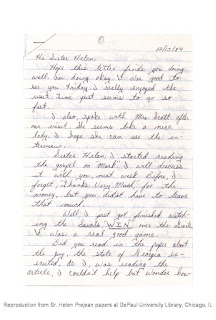 10/15/84
Hi Sister Helen,
Hope this letter finds you doing
well. I'm doing okay. It was good to
see you Friday, I really enjoyed the
visit. Time just seems to go so
fast.
I also, spoke with Mrs. Scott after
our visit. She seems like a nice
lady. I hope she can use the in-
terview.
Sister Helen, I started reading
the gospel on Mark. I will discuss
it with you, next week. Before I
forget, Thanks Very Much, for the
money, but you didn't have to leave
that much.
Well, I just got finished watch-
ing the Saints, WIN over the Rams,
it was a real good game.
Did you read in the paper about
the guy, the state of Georgia ex-
ecuted. As I, was reading the
article, I couldn't help but wonder how
Reproduction from Sr. Helen Prejean papers at DePaul University Library, Chicago, IL